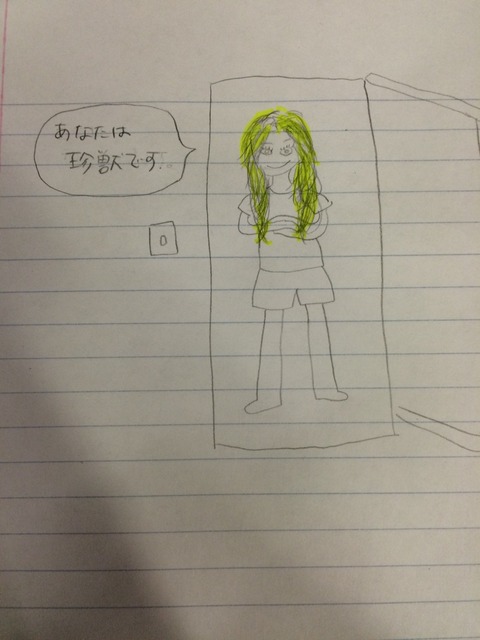 あなたは
珍獣です。
0